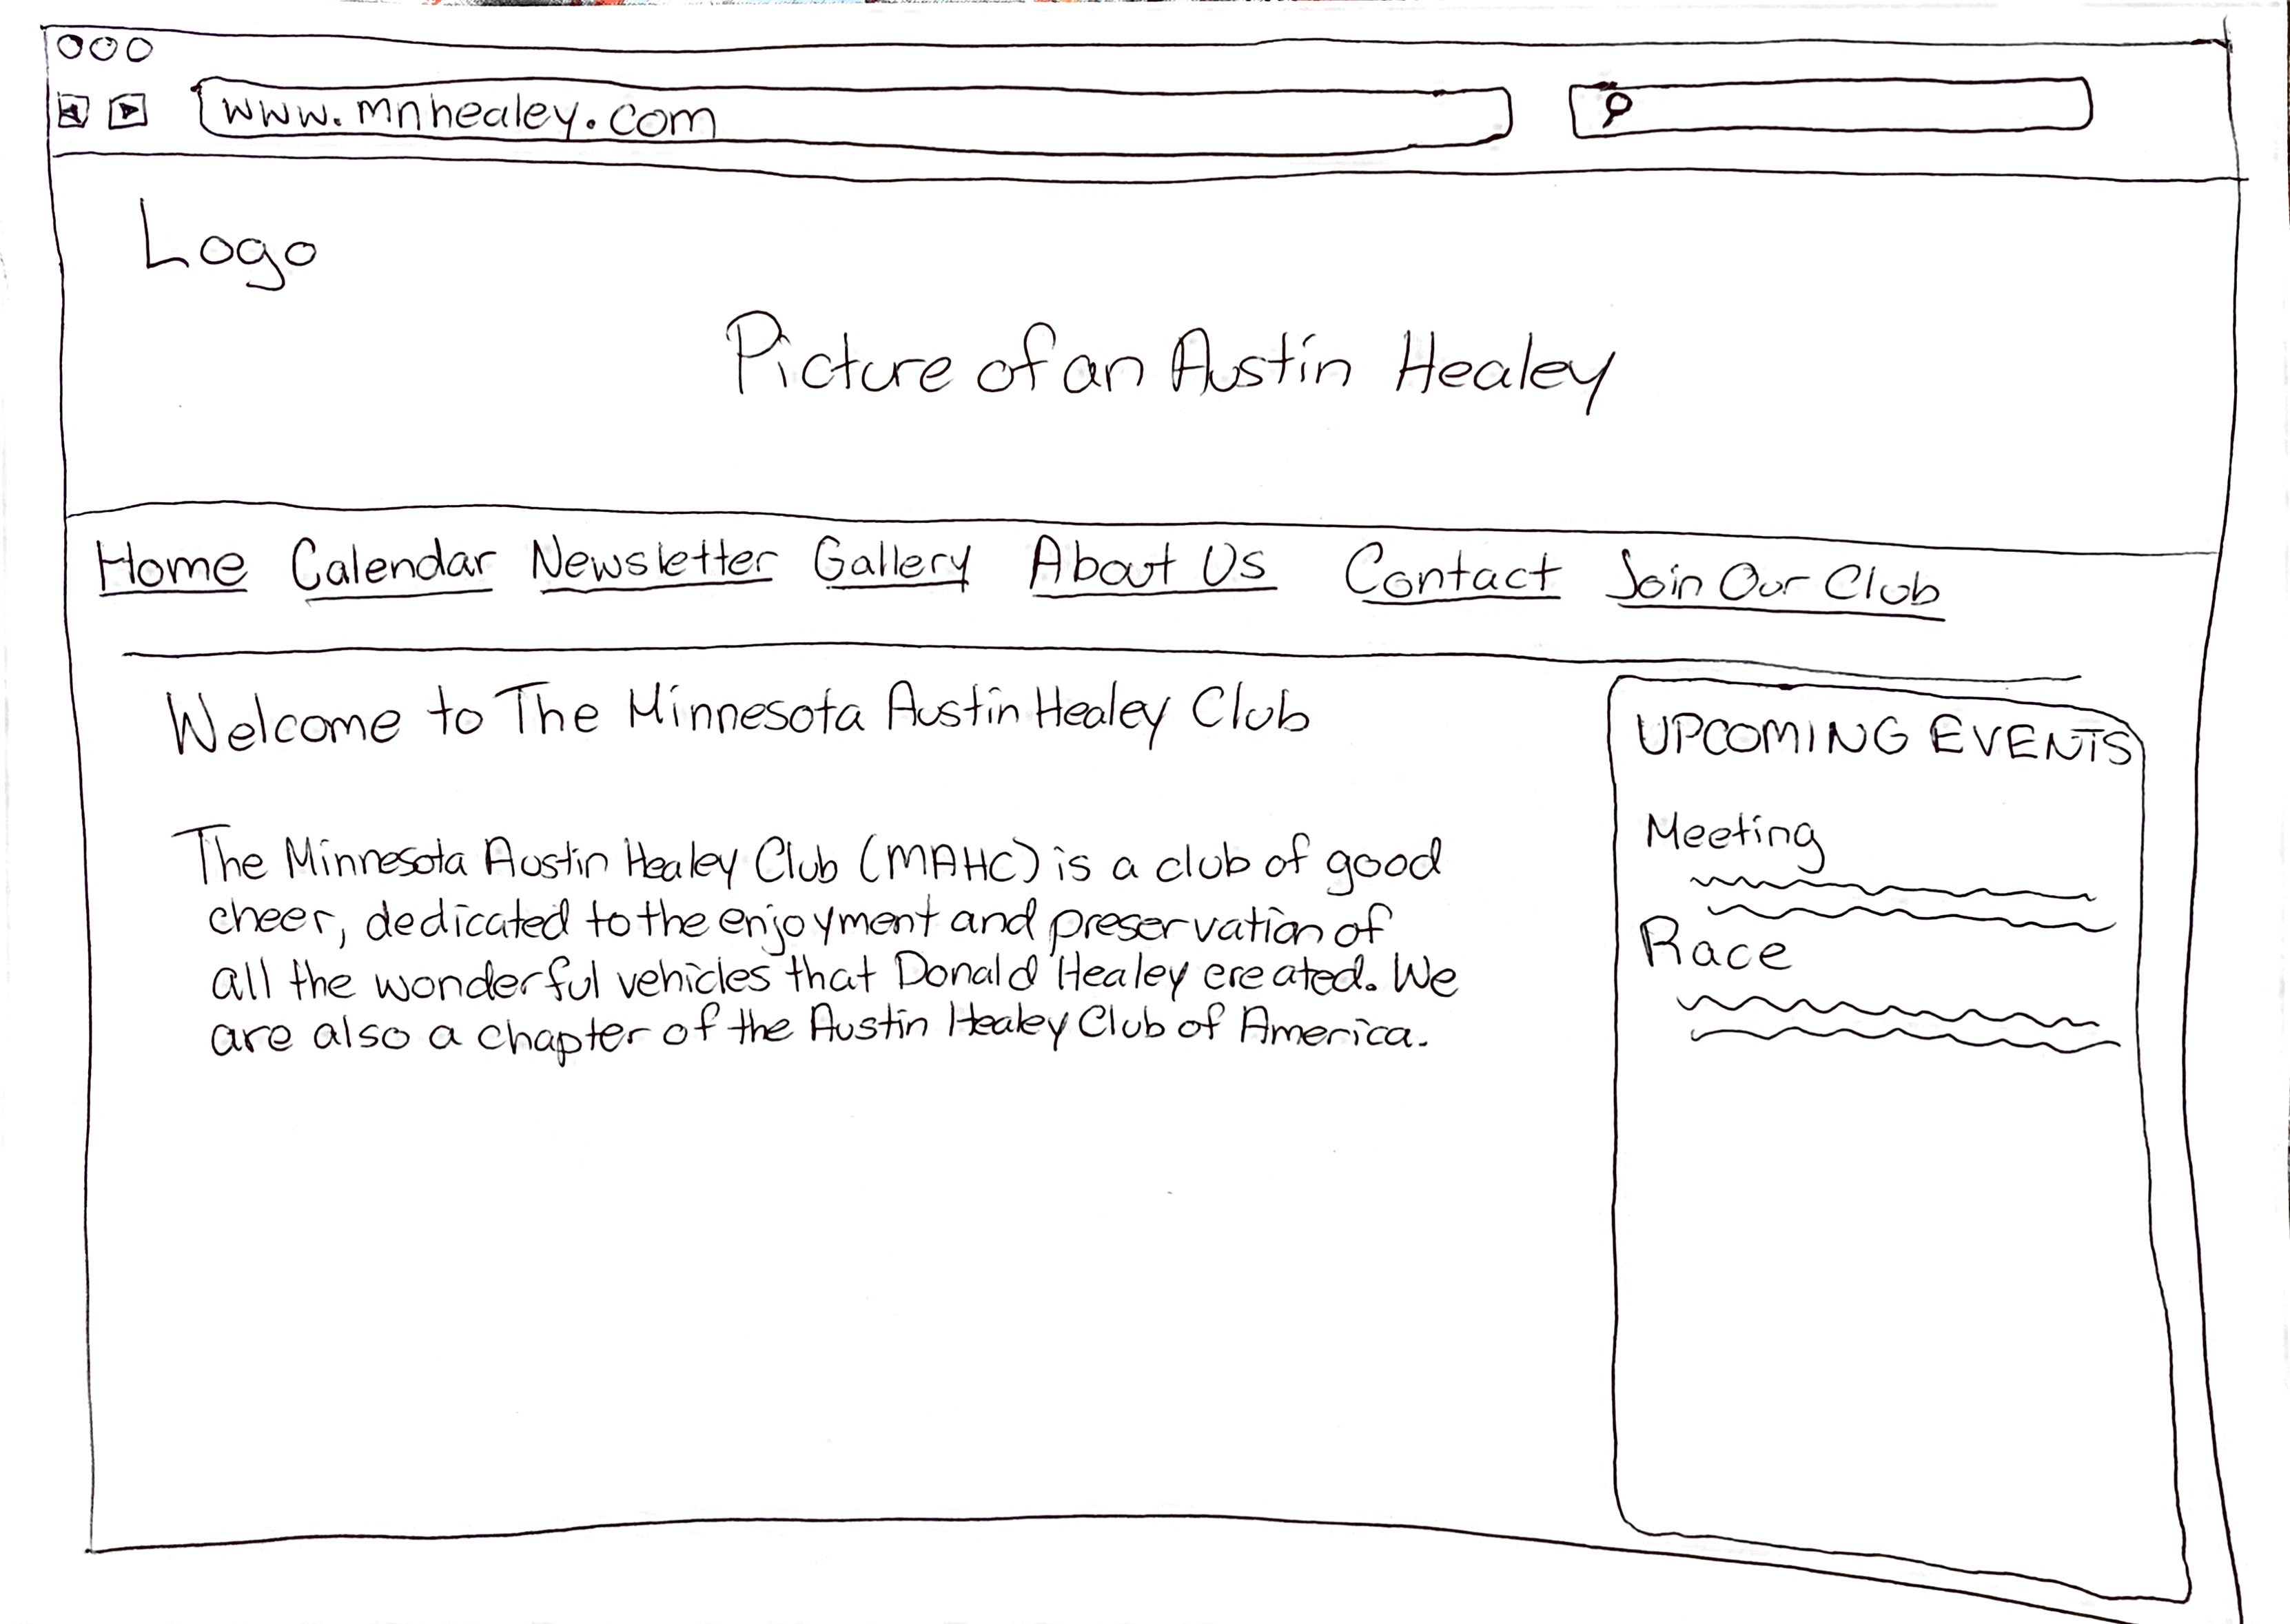 www.mnhealey.com
Logo
Picture of an Austin Healey
Home Calendar Newsletter Gallery About Us Contact Join Our Club
Welcome to The Minnesota Austin Healey Club
UPCOMING EVENTS
The Minnesota Austin Healey Club (MAHC) is a club of good
cheer, dedicated to the enjoyment and preservation of
all the wonderful vehicles that Donald Healey created. We
are also a chapter of the Austin Healey Club of America.
Meeting
Race